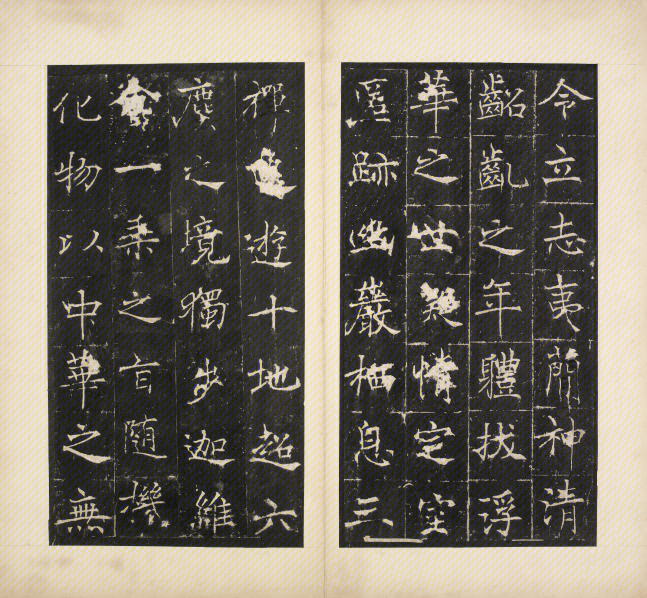 令立志夷簡神清
齠齔之年體拔浮
華之世凝情定室
匿跡幽巖栖息三
禪巡遊十地超六
塵之境獨步迦維
會一乘之旨隨機
化物以中華之無